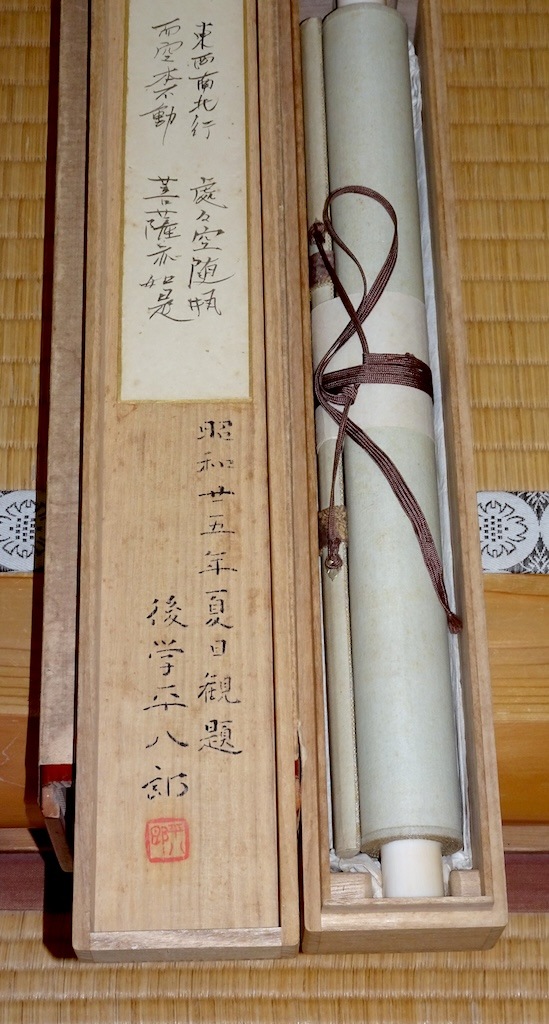 東西南北行　處々空随瓶
而空本不動　菩薩亦如是
昭和廿五年夏日観題
後学平八郎